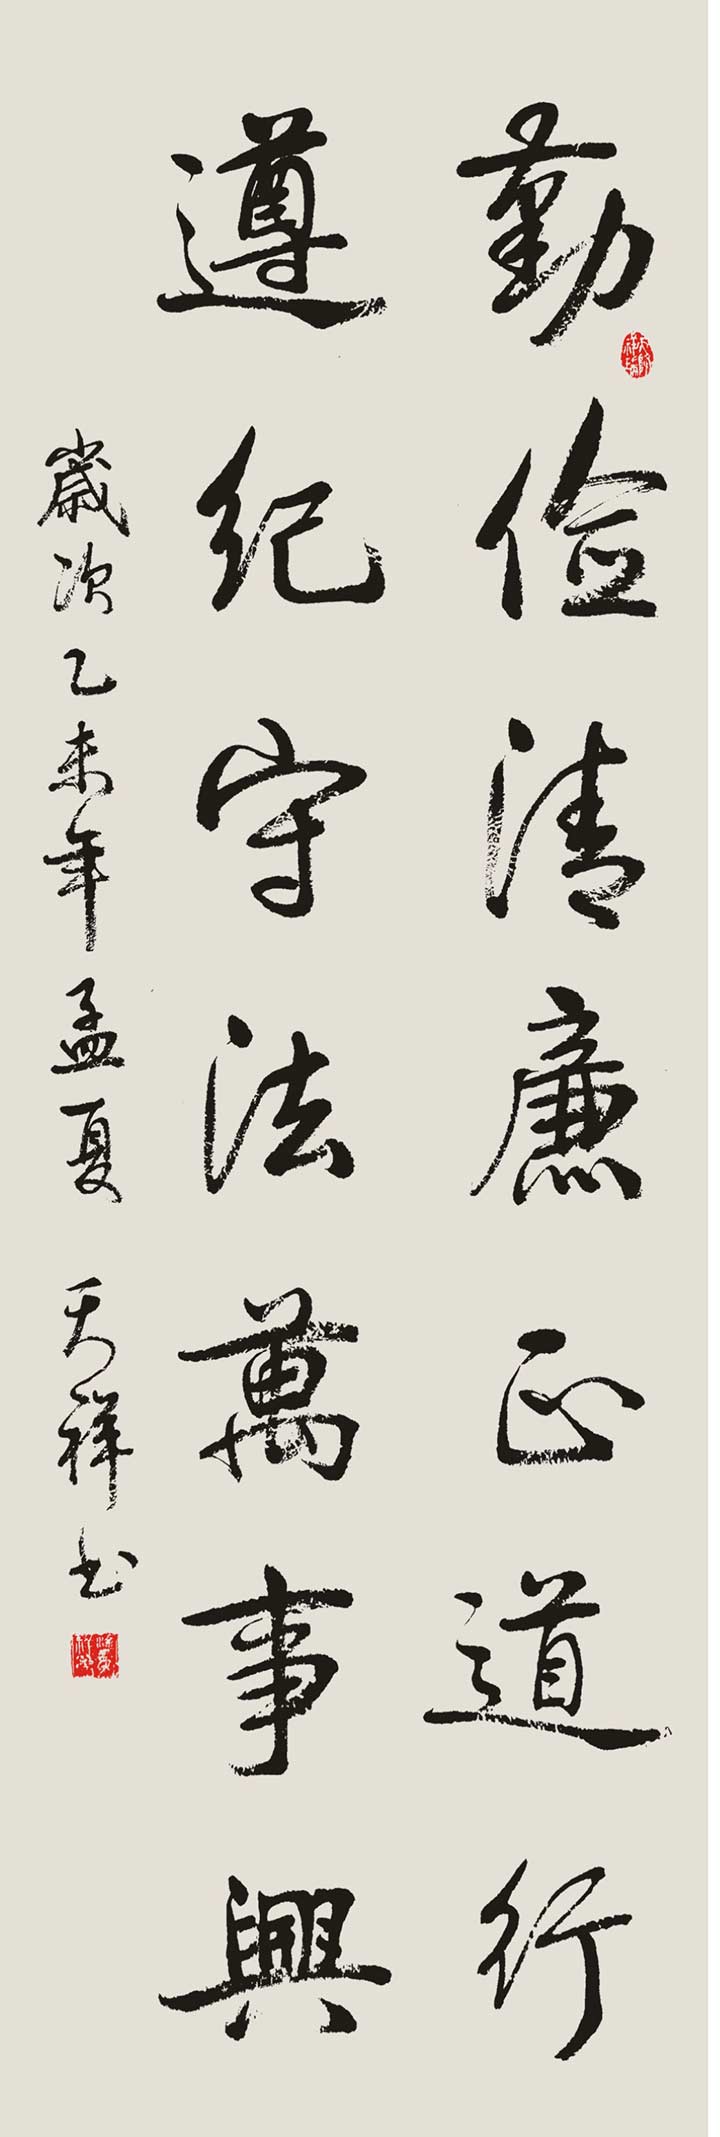 勤俭清廉正道行
遵纪守法萬事興
歲次乙未年孟夏 天祥书